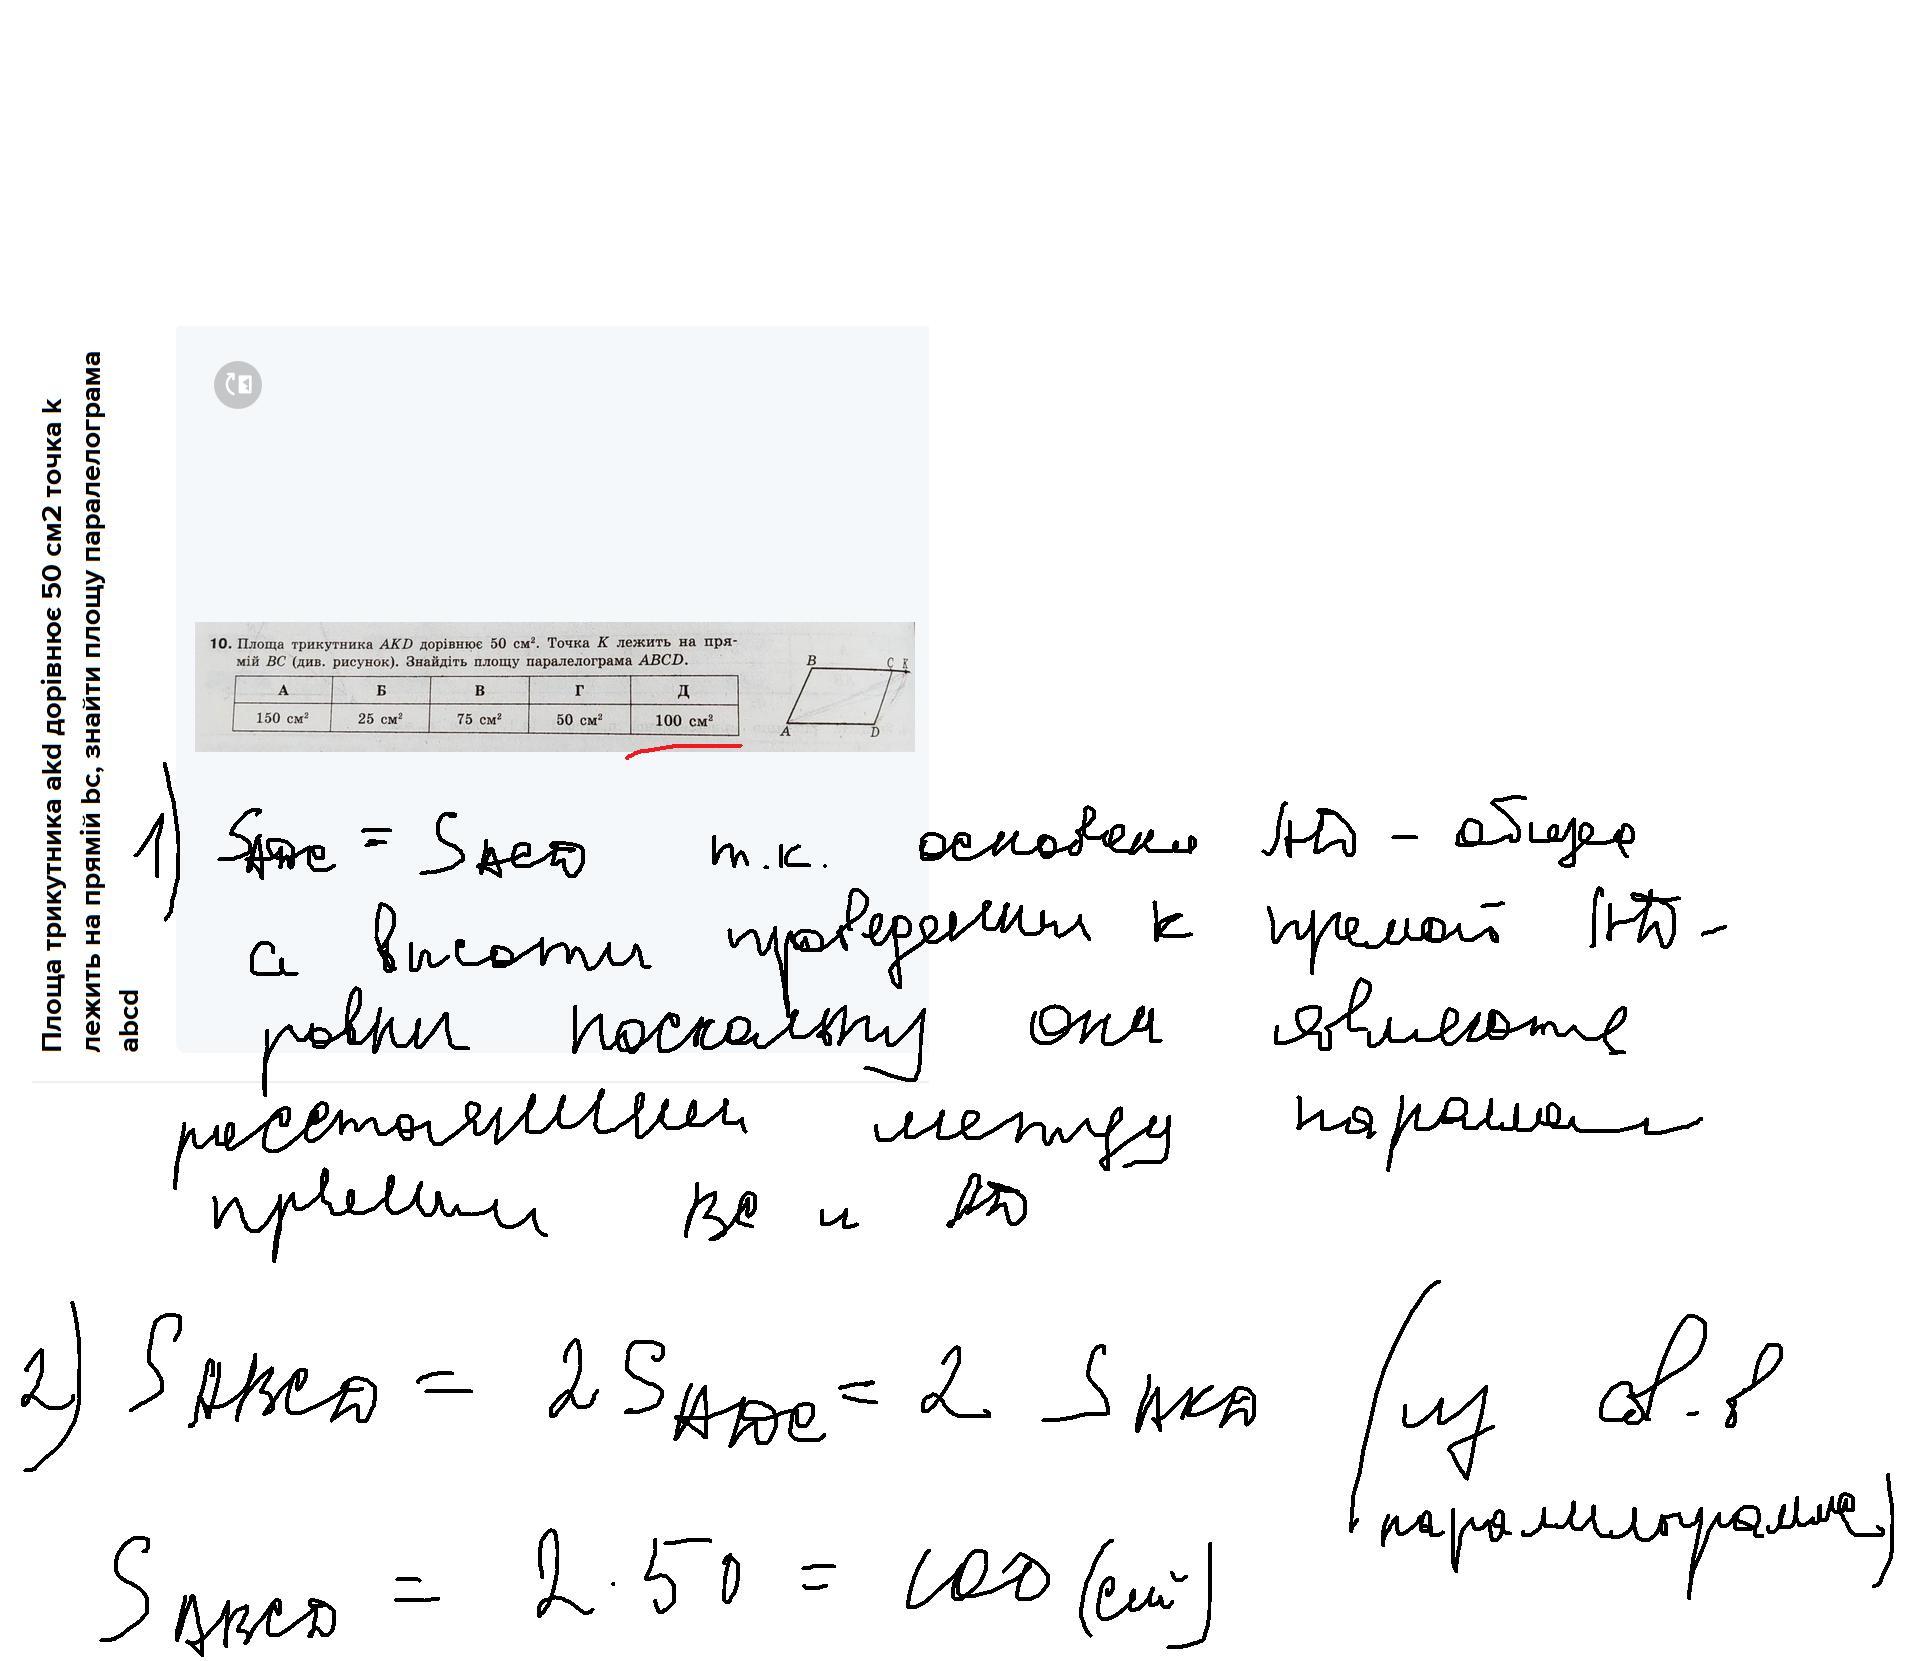 Площа трикутника akd дорівнює 50 см2 точка k
лежить на прямій bc, знайти площу паралелограма
abcd
10. Площа трикутника AKD дорівнює 50 см². Точка K лежить на пря-
мій BC (див. рисунок). Знайдіть площу паралелограма ABCD.
А Б В Г Д
150 см² 25 см² 75 см² 50 см² 100 см²
B C K
A D
1) S ADC = S ACD т.к. AD - общее
а высоты проведенни к прямой AD -
ровни поскольку они
между
BC и AD
2) S ABCD = 2 S ADC = 2 S AKD (из св-в
S ABCD = 2 · 50 = 100 (см²)